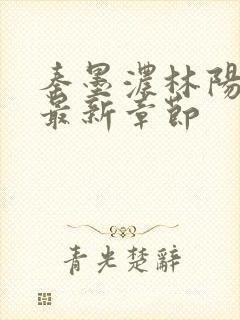 秦墨濃林陽
最新章節
青光楚辭